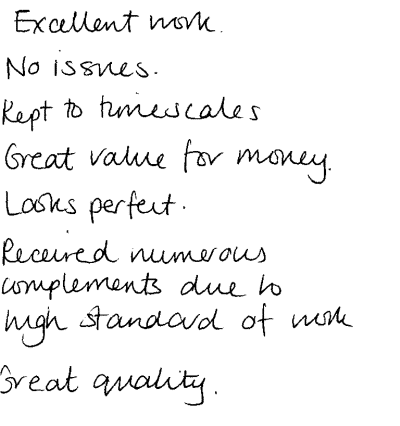 Excellent work.
No issues.
Kept to timescales
Great value for money.
Looks perfect.
Received numerous
complements due to
high standard of work
Great quality.